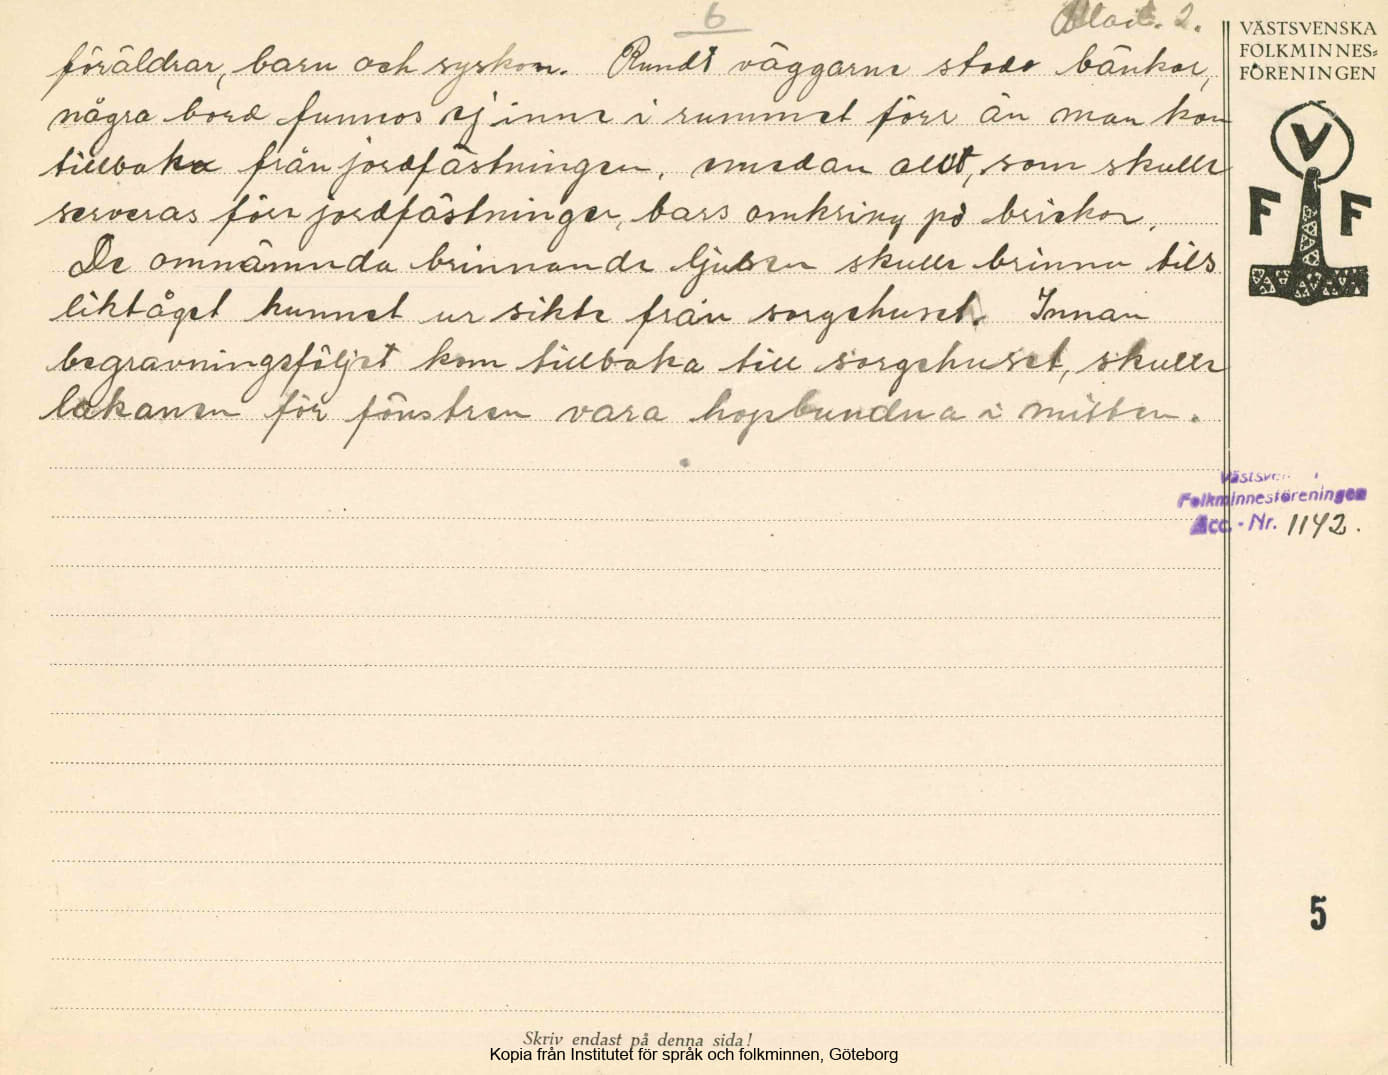 6
Blad. 2.
föräldrar, barn och syskon. Rundt väggarne stodo bänkar,
några bord funnos ej inne i rummet förr än man kom
tillbaka från jordfästningen, emedan allt, som skulle
serveras förr jordfästningen, bars omkring på brickor.
De omnämnda brinnande ljusen skulle brinna tills
liktåget hunnet ur sikte från sorgehuset. Innan
begravningsföljet kom tillbaka till sorgehuset, skulle
lakanen för fönstren vara hopbundna i mitten.
VÄSTSVENSKA
FOLKMINNES=
FÖRENINGEN
V
F F
Folkminnesföreningen
Acc. - Nr. 1142.
5
Skriv endast på denna sida!
Kopia från Institutet för språk och folkminnen, Göteborg